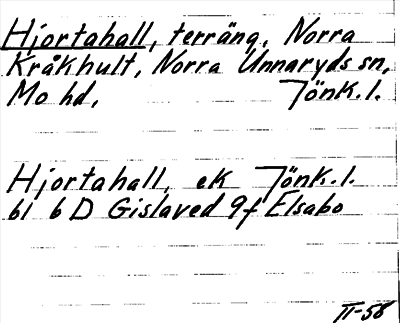 Hjortahall, terräng, Norra
Kråkhult, Norra Unnaryds sn,
Mo hd, Jönk. l.
Hjortahall, ek Jönk. l.
bl 6 D Gislaved 9f Elsabo
II-58